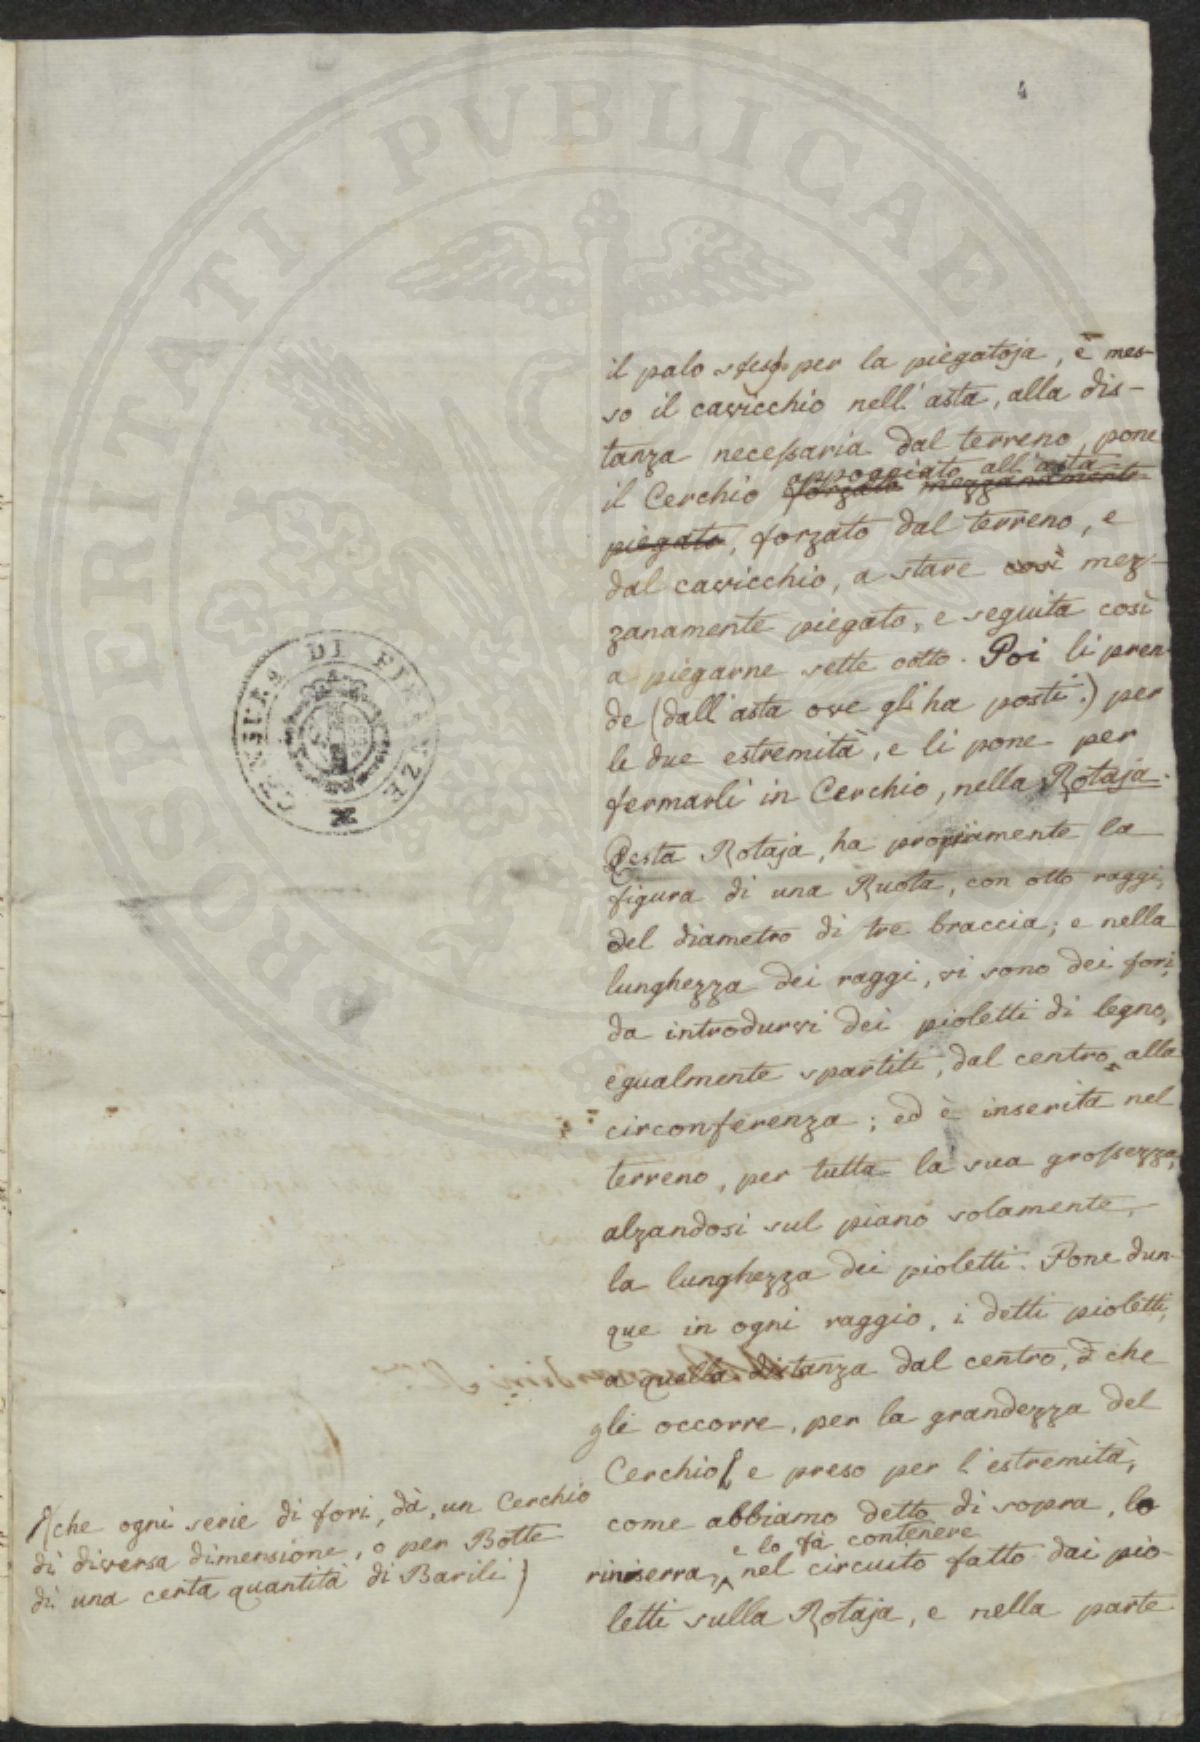 4
il palo steso per la piegatoja, è mes-
so il cavicchio nell'asta, alla dis-
tanza necessaria dal terreno, pone
appoggiato all'asta
il Cerchio forzato mezzanamente
piegato, forzato dal terreno, e
dal cavicchio, a stare così mez-
zanamente piegato, e seguita così
a piegarne sette otto. Poi li pren-
de (dall'asta ove gli ha posti.) per
le due estremità, e li pone per
fermarli in Cerchio, nella Rotaja.
Qesta Rotaja, ha propriamente la
figura di una Ruota, con otto raggi,
del diametro di tre braccia; e nella
lunghezza dei raggi, vi sono dei fori,
da introdurvi dei pioletti di legno,
egualmente spartiti, dal centro, alla
circonferenza; ed è inserita nel
terreno, per tutta la sua grossezza,
alzandosi sul piano solamente,
la lunghezza dei pioletti. Pone dun-
que in ogni raggio, i detti pioletti,
a quella distanza dal centro, che
gli occorre, per la grandezza del
Cerchio( e preso per l'estremità,
come abbiamo detto di sopra, lo
e lo fà contenere
riniserra, nel circuito fatto dai pio-
letti sulla Rotaja, e nella parte
(che ogni serie di fori, dà, un Cerchio
di diversa dimensione, o per Botte
di una certa quantità di Barili)
PROSPERITATI PVBLICAE
DI FIRENZE